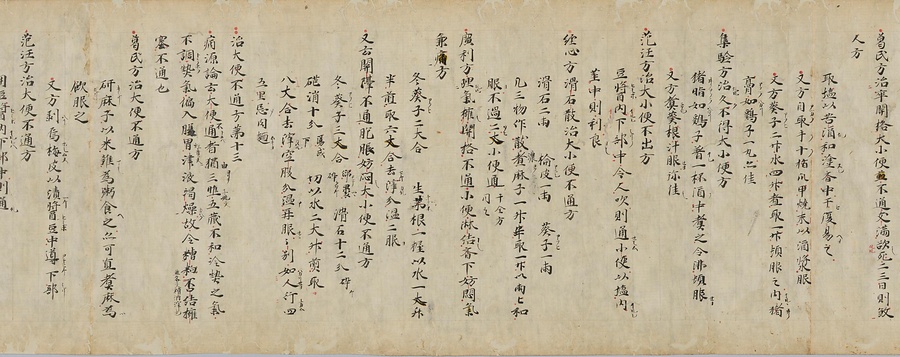 葛氏方治卒關格大小便不通支滿欲死二三日則敦
人方
取塩以苦酒和塗齊中干復易之
又方自取十手指爪甲燒末以酒漿服
又方葵子二升水四升煮取一升頓服之内猪
膏如鷄子一丸佳
集驗方治久不得大小便方
猪脂如鷄子着一杯酒中煮之令沸頓服
又方葵根汁服弥佳
范汪方治大小便不出方
豆醬内下部中令人吹則通小便以塩内
莖中則利良
經心方滑石散治大小便不通方
滑石二兩 榆皮一兩 葵子一兩
凡三物作散煮麻子一升半取一升 二匕和
服不過三 大小便通
廣利方 氣擁關格不通小便淋結齊下妨悶氣
兼痛方
冬葵子三大合 茅根一握以水一大升
半煎取六大合去滓分温二服
又云關隔不通肥脹妨悶大小便不通方
冬葵子三大合碎 滑石十二分碎
硭消十分 切以水二大升煎取
八大合去滓空腹分温再服服別如人行四
五里忌同麵
治大便不通方第十三
病源論云大便不通者猶三焦五藏不和冷熱之氣
不調熱氣偏入腸胃津液竭燥故令糟粕否結擁
塞不通也
葛氏方治大便不通方
研麻子以米雜爲粥食之亦可直煮麻爲
飲服之
又方削烏梅皮以漬醬豆中導下部
范汪方治大便不通方